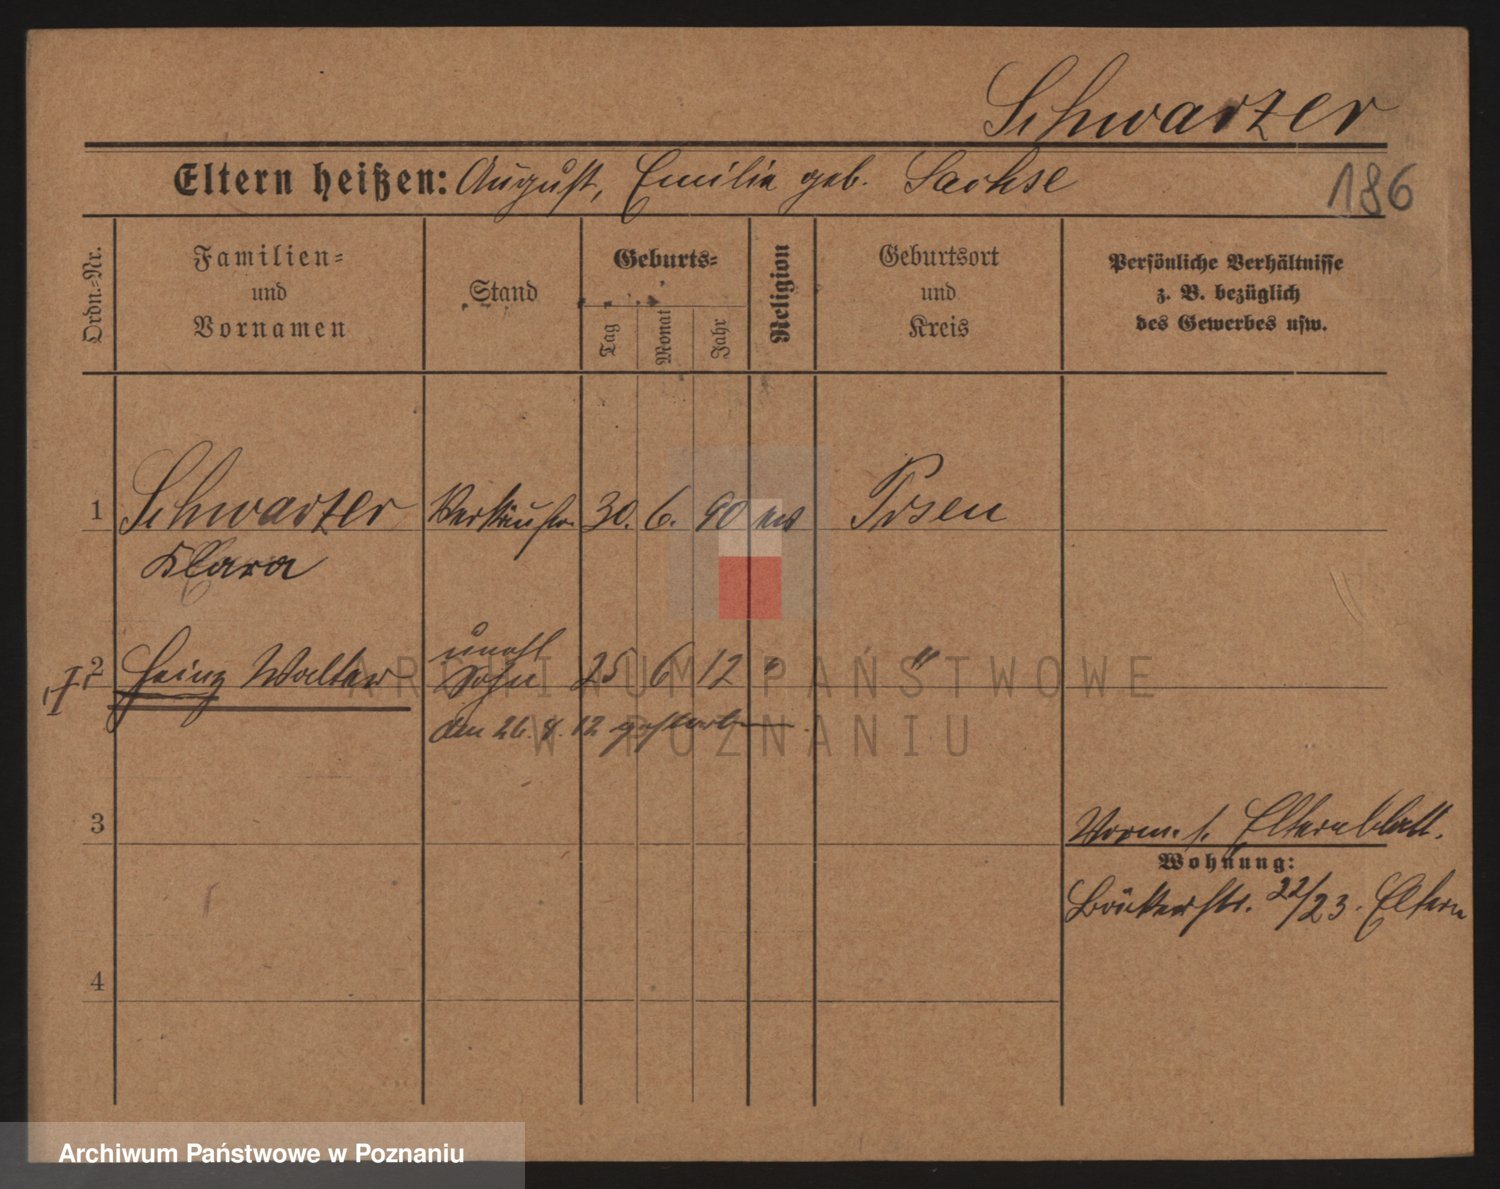 Schwarzer
Eltern heißen: August, Emilie geb. Sachse
186
Ordn.-Nr.
Familien-
und
Vornamen
Stand
Geburts-
Tag
Monat
Jahr
Religion
Geburtsort
und
Kreis
Persönliche Verhältnisse
z. B. bezüglich
des Gewerbes usw.
1 Schwarzer Verkäuferin 30. 6. 90 ev Posen
Klara
2 Heinz Walter unehl Sohn 25 6 12 " "
den 26. 8. 12 gestorben
3
Vorm. s. Elternblatt.
Wohnung:
Bäckerstr. 22/23. Eltern
4
ARCHIWUM PAŃSTWOWE
W POZNANIU
Archiwum Państwowe w Poznaniu